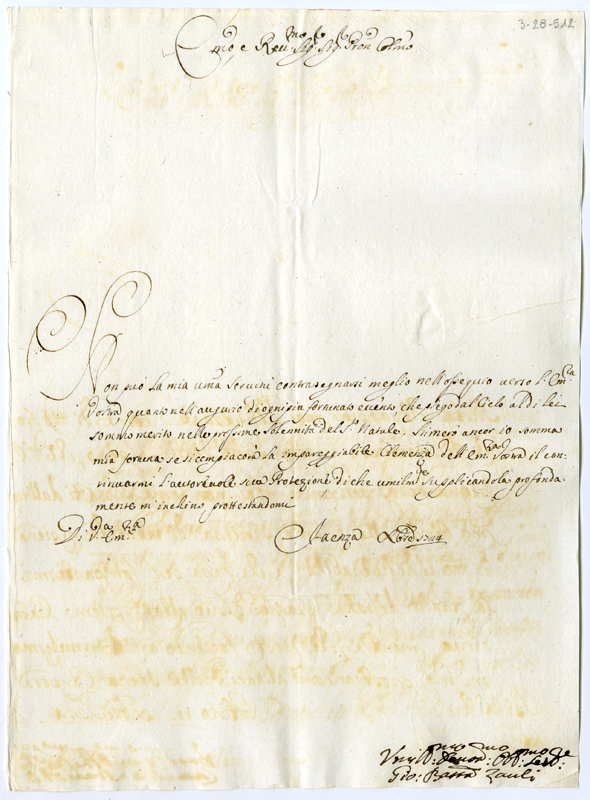 3-28-512
Emo, e Reu.mo Sig.r Sig.r Pron Colmo
Non può la mia uma Seruitù contrasegnarsi meglio nell'ossequio uerso l'Em.za
Vostra, quanto nell'augurio d'ogni più fortunato euento, che priego dal Cielo al di lei
sommo merito nelle prossime Solennità del S.o Natale. Stimerò ancor io somma
mia fortuna, se si compiacerà la impareggiabile Clemenza dell'Em.za Vostra il con-
tinuarmi l'autoreuole sua Protezione, di che umilm.te Supplicandola profonda-
mente m'inchino, prottestandomi
Di V.ra Em.za
Faenza Xbre 1744
Umil.mo Deuot.mo Obb.mo Seru.re
Gio: Batta Zauli